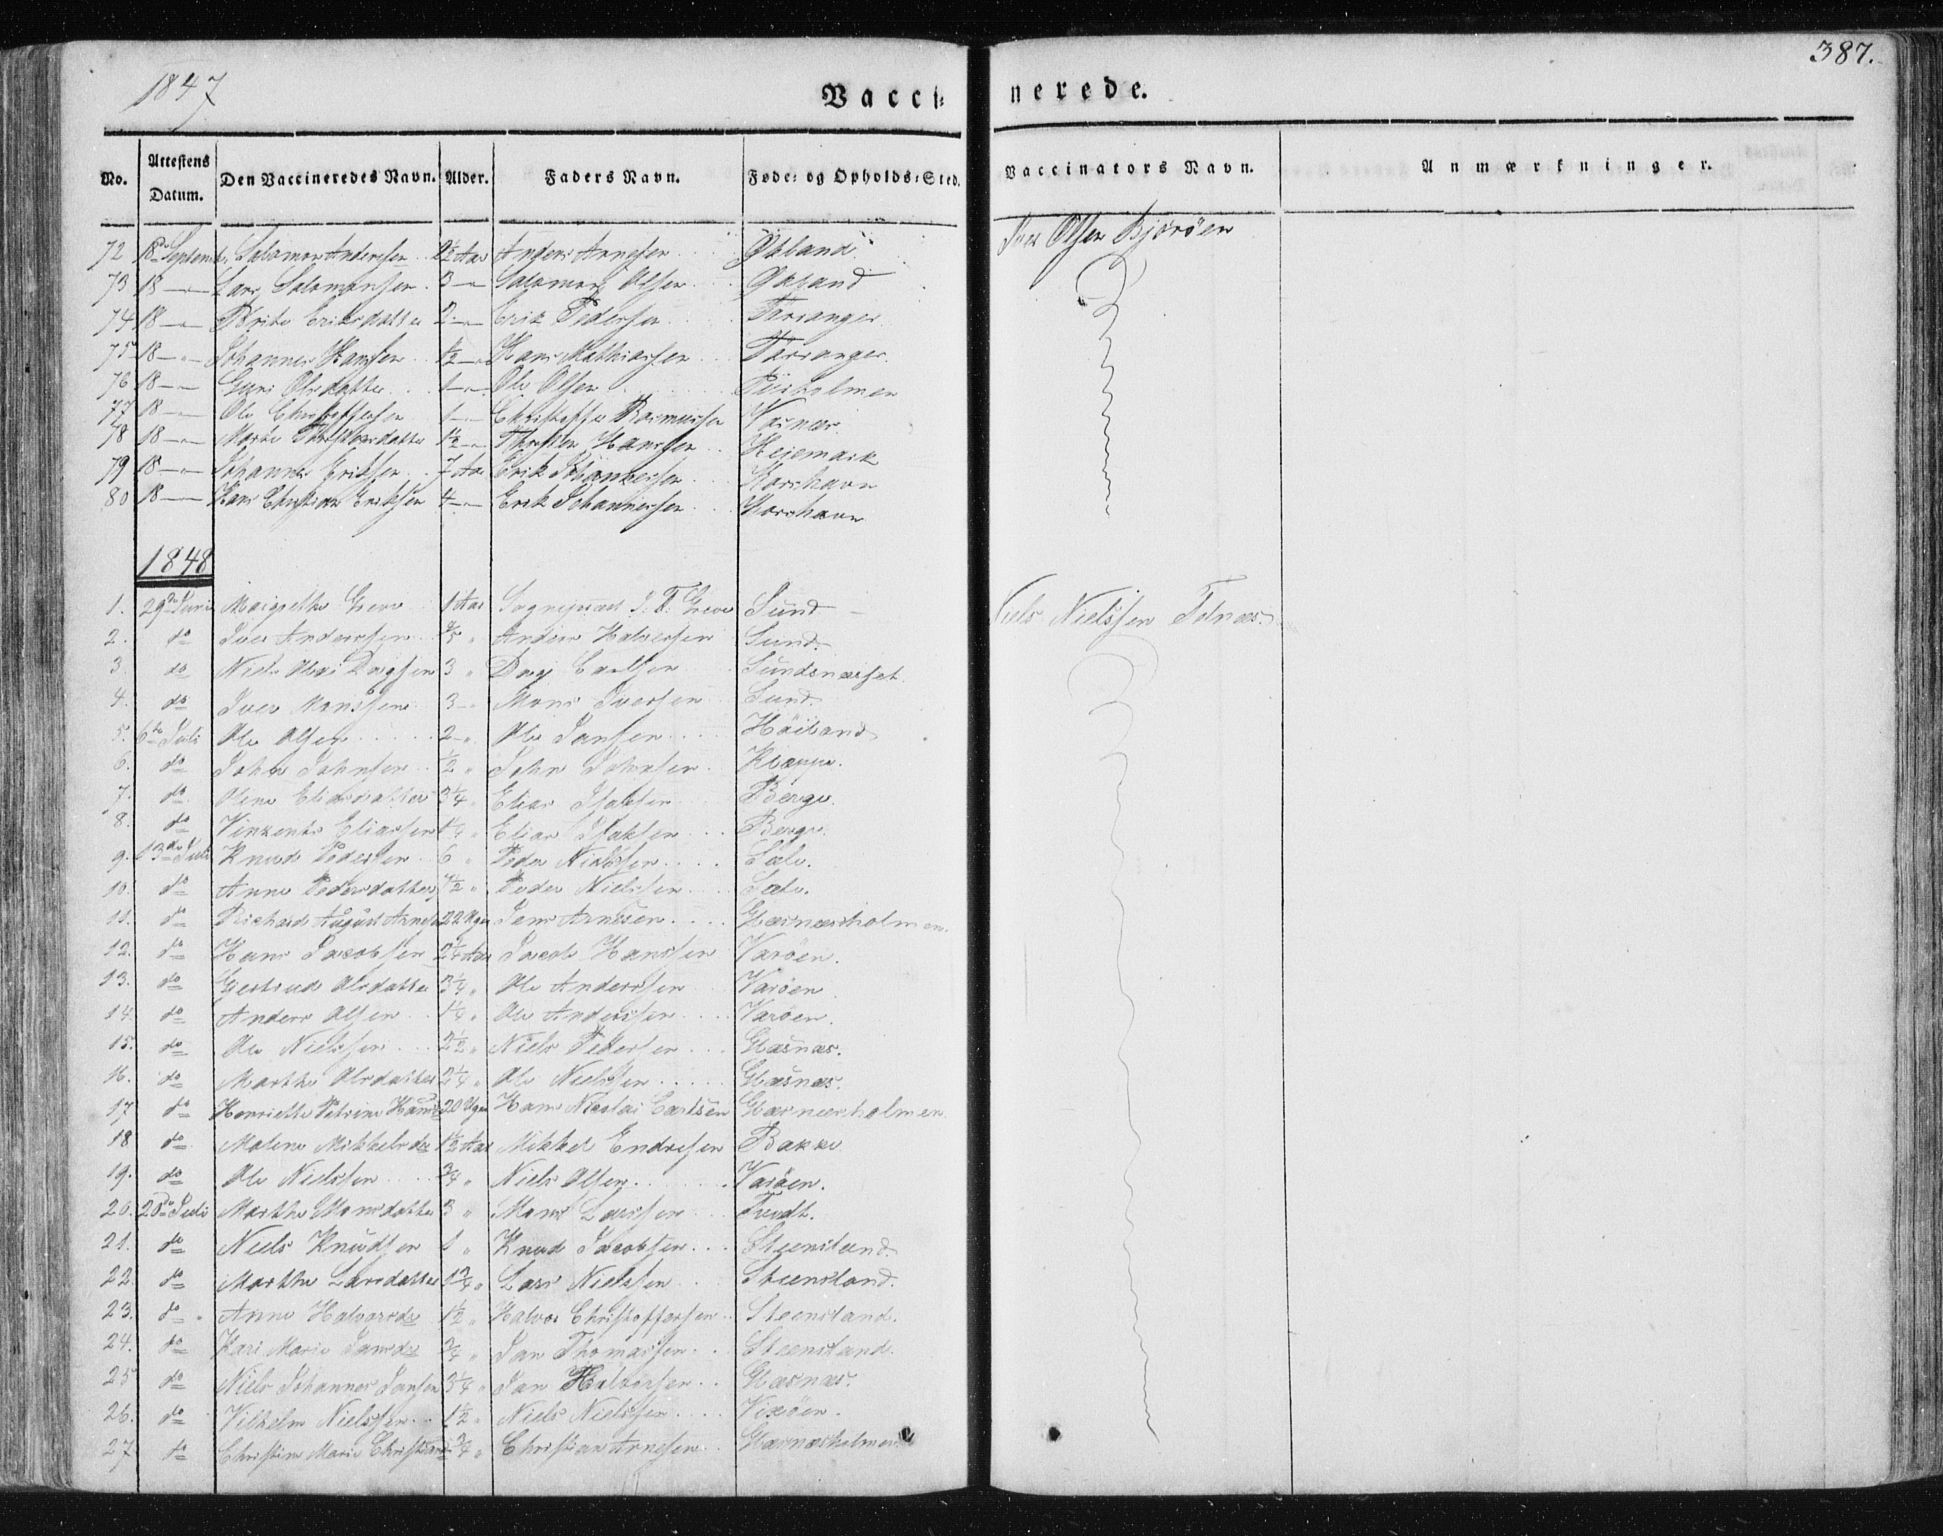 387.
1847
Vacci- nerede.
No. Attestens Datum. Den Vaccineredes Navn. Alder. Faders Navn. Føde- og Opholds-Sted. Vaccinators Navn. Anmærkninger.
72 18de Septemb. Salomon Andersen 2½ Aar Anders Arnesen Økland Iver Olsen Bjorøen
73 18 — Lars Salomonsen 3 — Salomon Olsen Økland
74 18 — Brite Eriksdatter 2 — Erik Pedersen Tarranger
75 18 — Johannes Hansen ½ — Hans Mathiassen Tarranger
76 18 — Guri Olsdatter 1 — Ole Olsen
77 18 — Ole Christoffersen 1 — Christoffer Rasmussen
78 18 — 1½ — Thorsten Hanssen
79 18 — Johannes Eriksen 7 Aar Erik Johannessen Korshavn
80 18 — Hans Christian Eriksen 4 — Erik Johannessen Korshavn
1848
1. 29de Juni Margrethe Greve 1 Aar Sogneprest J. T. Greve Sund Niels Nielssen Telnæs
2. do Iver Anderssen Anders Halversen Sund
3. do Niels Dagsen 3 " Dag Carlsen Sundsnæset
4. do Iver Monssen 3 - Mons Iversen Sund
5. 6te Juli Ole Olsen 2 - Ole Jansen Høiland
6. do John Johnsen ½ " John Johnsen Kleppe.
7. do Oline Eliasdatter 3¼ Elias Isaksen Berge.
8. do Vinzents Eliassen 1¼ " Elias Isaksen Berge.
9. 13de Juli Knud Pedersen 6 " Peder Nielssen
10. do Anne Pedersdatter Peder Nielssen
11. do Richard August Arnesen 22 Uger Jens Arnesen Glæsnæsholmen.
12. do Hans Jacobsen 2¼ Aar Jacob Hanssen Varøen.
13. do Gertrude Olsdatter 3¼ " Ole Anderssen Varøen
14. do Anders Olsen 1¼ " Ole Anderssen Varøen.
15. do Ole Nielssen 2½ " Niels Pedersen Glæsnæs.
16. do Marthe Olsdatter 2¼ " Ole Nielssen Glæsnæs.
17 do Henriette Petrine Hansd 20 Uger Hans Nicolai Carlsen Glæsnæsholmen
18 do Malene Mikkelsdr 1½ Aar Mikkel Endresen Bakke
19. do Ole Nielssen ¾ " Niels Olsen Varøen.
20. 20de Juli Marthe Monsdatter 3 " Mons Larssen Tvedt.
21. do Niels Knudsen 1 " Knud Jacobsen Steensland
22. do Marthe Larsdatter 1¾ " Lars Nielssen Steensland.
23. do Anne Halvorsdr 1½ " Halvor Christoffersen Steensland.
24. do Kari Marie Jansdr ¾ " Jan Thomassen Steensland.
25 do Niels Johannes Jansen 3¼ " Jan Halvorsen Glæsnæs.
26. do Vilhelm Nielssen 1½ " Niels Nielssen Vixøen.
27 do Christine Marie ¾ " Christian Arnesen Glæsnæsholmen